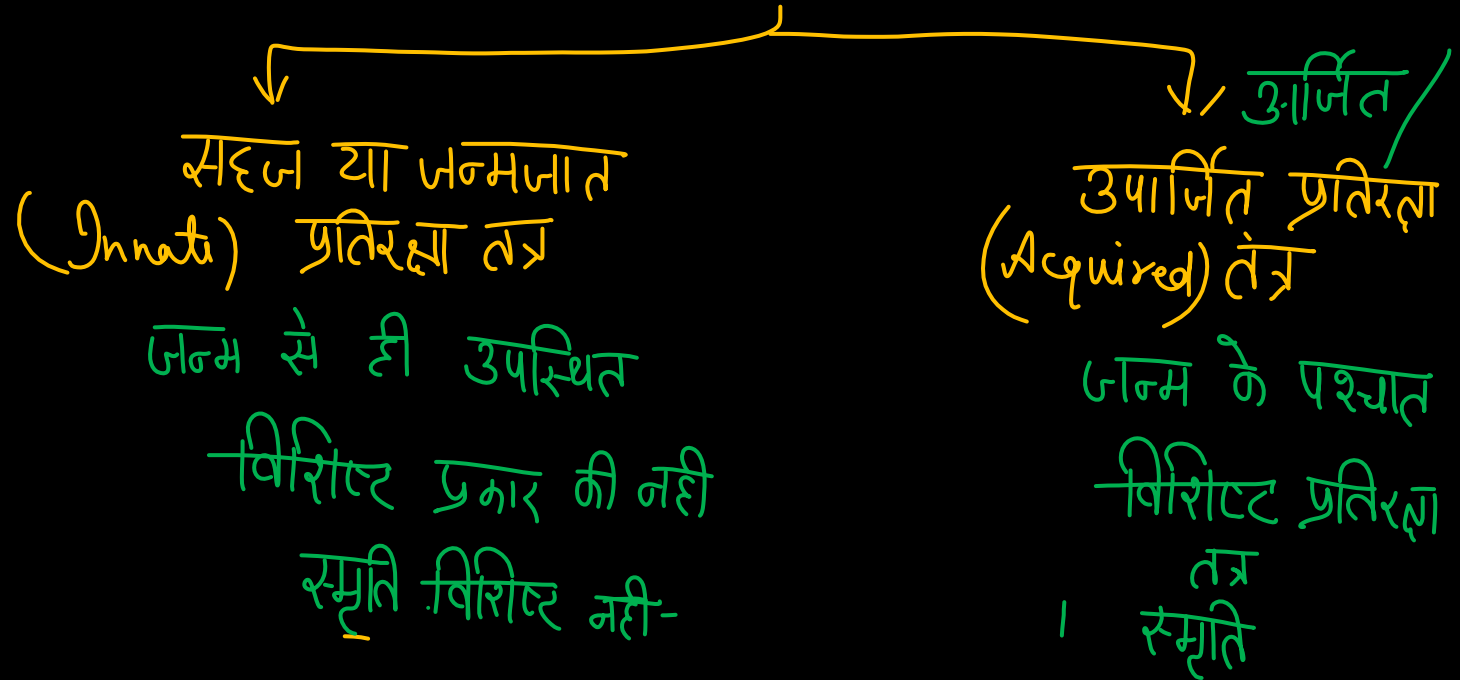 सहज या जन्मजात
(Innate) प्रतिरक्षा तंत्र
जन्म से ही उपस्थित
विशिष्ट प्रकार की नही
स्मृति विशिष्ट नही
अर्जित/
उपार्जित प्रतिरक्षा
(Acquired) तंत्र
जन्म के पश्चात
विशिष्ट प्रतिरक्षा
तंत्र
स्मृति